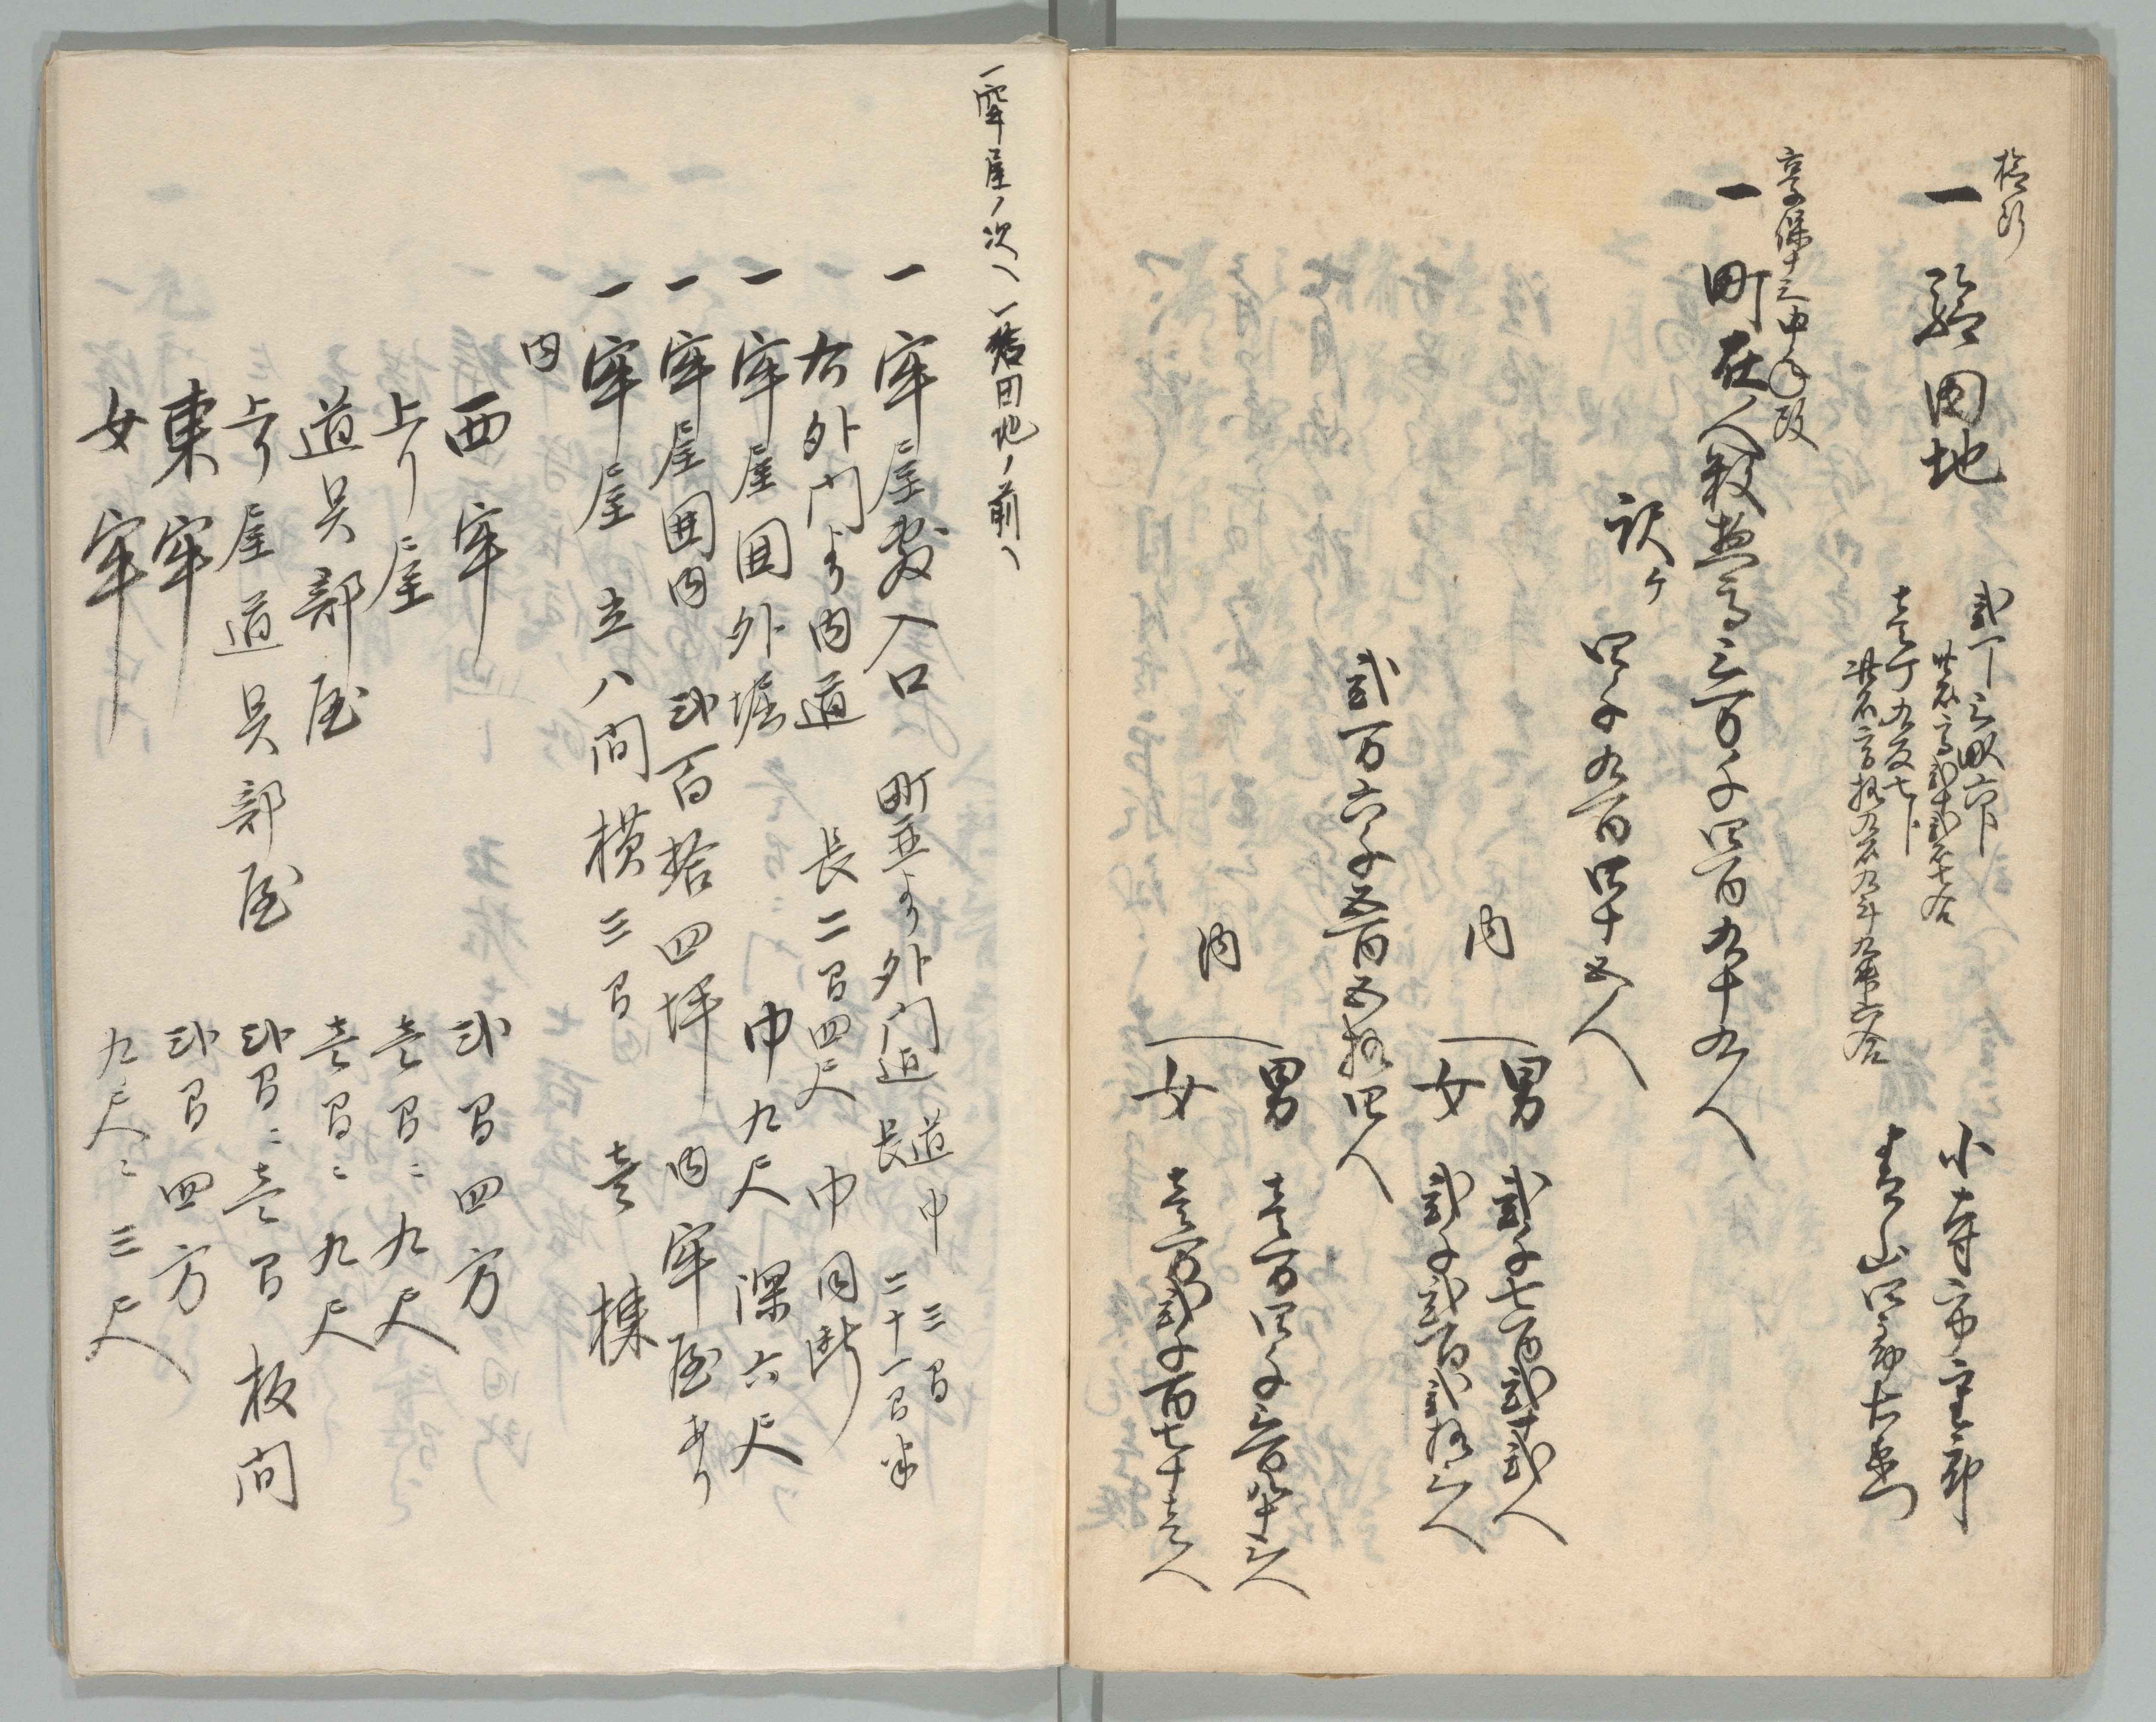 一 給田地
弐丁三畝六卜
此石高弐十弐石七合
小寺市重郎
壱丁九反七卜
此石高拾九石九斗九升六合
享保十三申年改
一 町在人数惣高三万千四百九十九人
訳ケ
四千九百四十五人
内
男 弐千七百弐十弐人
女 弐千弐百弐拾三人
弐万六千五百五拾四人
内
男 壱万四千三百八十三人
女 壱万弐千百七十壱人
一牢屋ノ次へ 一給田地ノ前へ
一 牢屋敷入口 町並より外門迄 道巾 三間
長 二十一間半
一 右外門より内道 長二間四尺 巾同断
一 牢屋囲外堀 巾九尺 深六尺
一 牢屋囲内 弐百拾四坪 内牢屋あり
一 牢屋 立八間横三間 壱棟
内
西牢 弐間四方
上り屋 壱間ニ九尺
道具部屋 壱間ニ九尺
上り屋道具部屋 弐間ニ壱間 板間
東牢 弐間四方
女牢 九尺ニ三尺